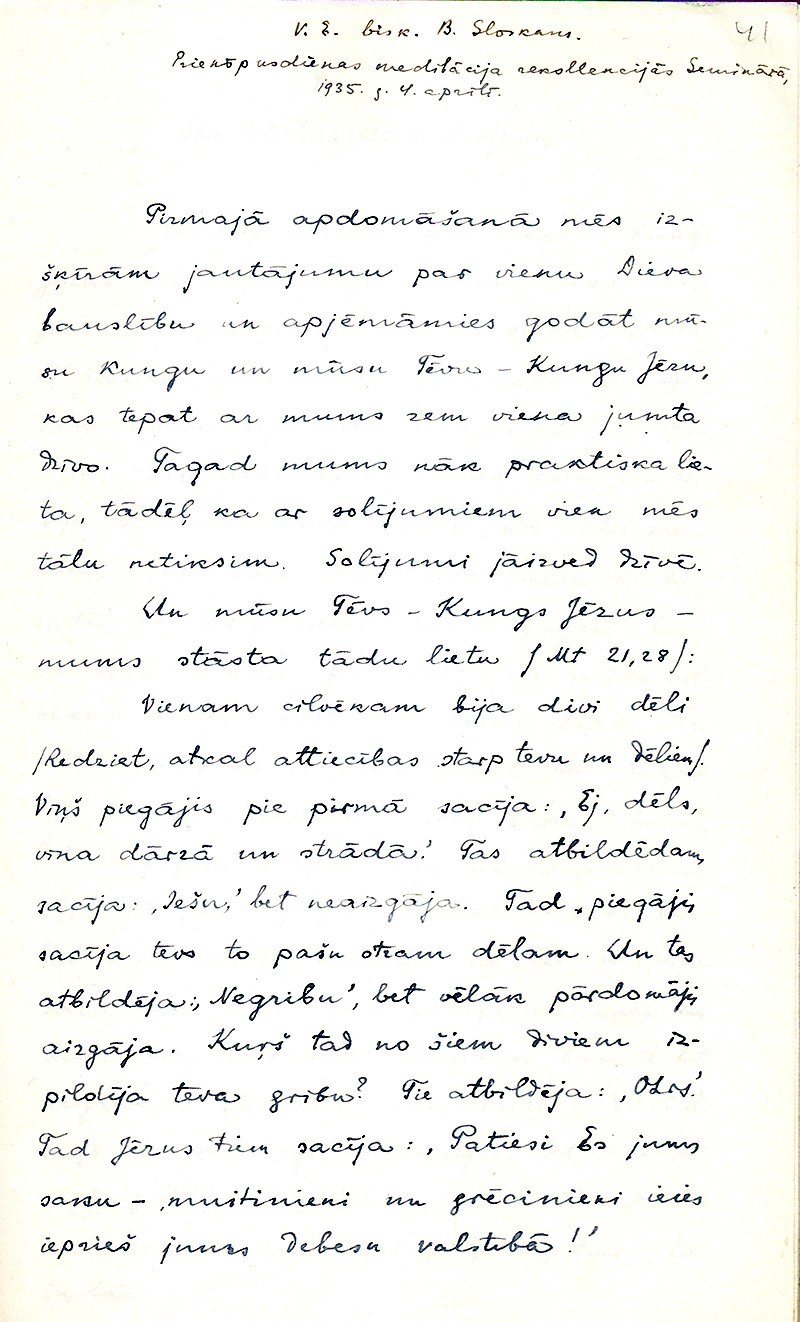 41
V. E. bisk. B. Sloskans.
Priekšpusdienas meditācija rekollekcijās Seminārā,
1935. g. 4. aprīlī.
Pirmajā apdomāšanā mēs iz-
šķīrām jautājumu par vienu Dieva
bauslību un apjēmāmies godāt mū-
su Kungu un mūsu Tēvu – Kungu Jēzu,
kas tepat ar mums zem viena jumta
dzīvo. Tagad mums nāk praktiska lie-
ta, tādēļ ka ar solījumiem vien mēs
tālu netiksim. Solījumi jāizved dzīvē.
Un mūsu Tēvs – Kungs Jēzus –
mums stāsta tādu lietu /Mt 21,28/:
Vienam cilvēkam bija divi dēli
/Redziet, atkal attiecības starp tevu un dēliem/.
Viņš piegājis pie pirmā sacīja: ,Ej, dēls,
vīna dārzā un strādā.' Tas atbildēdams
sacīja: ,Iešu,' bet neaizgāja. Tad piegājis
sacīja tevs to pašu otram dēlam. Un tas
atbildēja: ,Negribu', bet vēlāk pārdomājis
aizgāja. Kuŗš tad no šiem diviem iz-
pildīja teva gribu? Tie atbildēja: ,Otrs.'
Tad Jēzus tiem sacīja: ,Patiesi Es jums
saku – muitinieki un grēcinieki ieies
iepriekš jums debesu valstībā!'